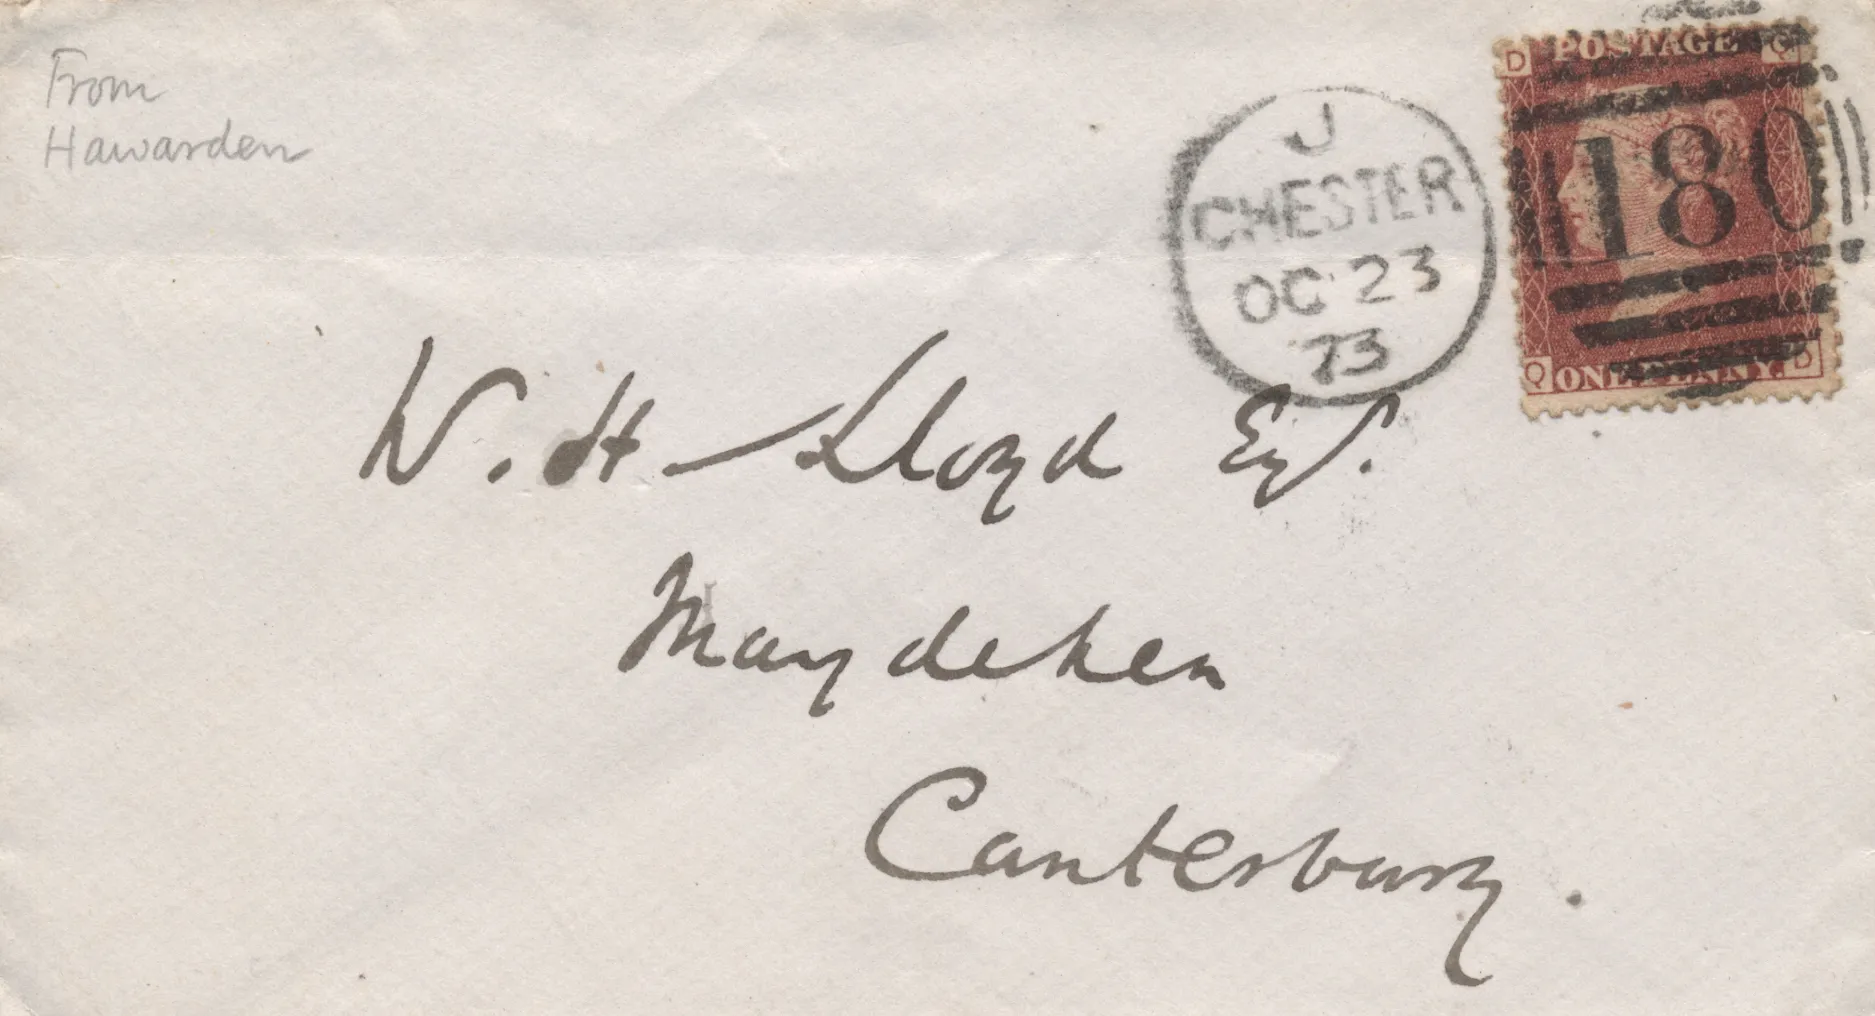 From
Hawarden
J
CHESTER
OC 23
73
D POSTAGE Q
180
Q ONE PENNY. D
W. H. Lloyd Esq.
Maydeken
Canterbury.